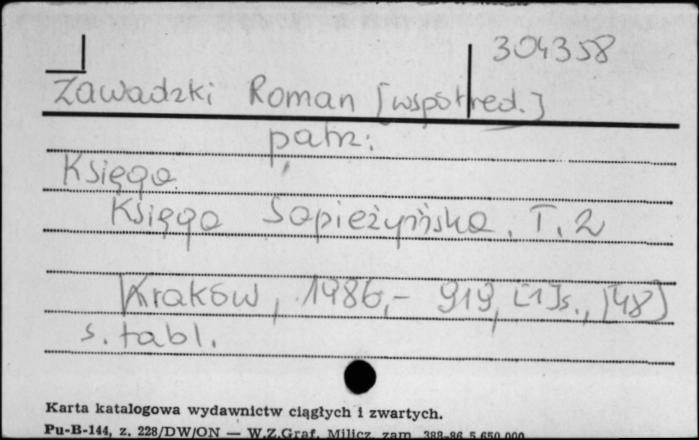 304358
Zawadzki Roman [współred.]
patrz:
Księga
Księga Sapieżyńska. T. 2
Kraków, 1986.- 919, [1]s., [48]
s. tabl.
Karta katalogowa wydawnictw ciągłych i zwartych.
Pu-B-144, z. 228/DW/ON — W.Z.Graf. Milicz, zam. 388-86 5.650.000